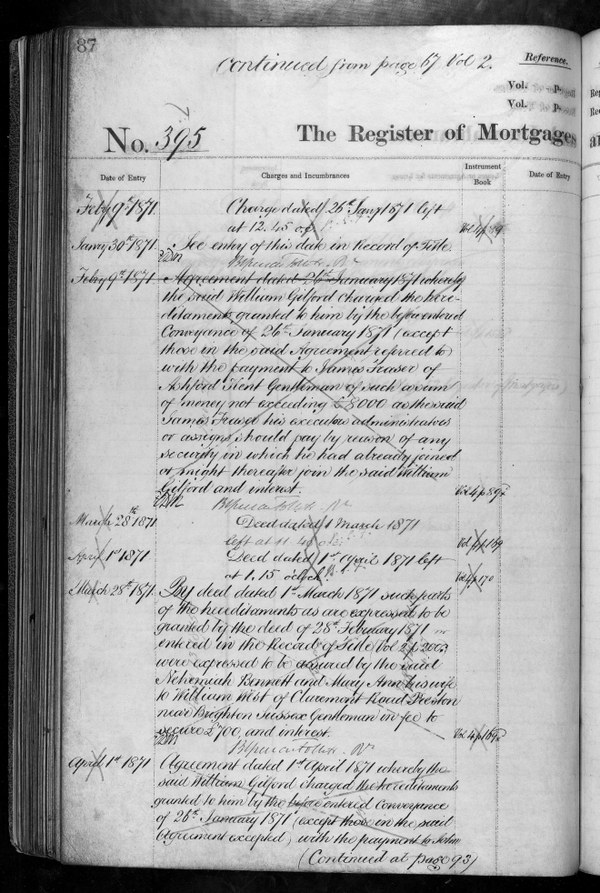 87
Continued from page 67 Vol 2.
Reference.
Vol. p.
Vol. p.
No. 395
The Register of Mortgages
Date of Entry
Charges and Incumbrances
Instrument Book
Date of Entry
Feby 9th 1871
Charge dated 26th Jany 1871 left
at 12.45
Vol 4 p 89
Jany 30th 1871
See entry of this date in Record of Title
Feby 9th 1871
Agreement dated 26th January 1871 whereby
the said William Gilford charged the here-
ditaments granted to him by the before entered
Conveyance of 26th January 1871 (except
those in the said Agreement referred to)
with the payment to James Fraser of
Ashford Kent Gentleman of such a sum
of money not exceeding £8000 as the said
James Fraser his executors administrators
or assigns should pay by reason of any
security in which he had already joined
or might thereafter join the said William
Gilford and interest.
Vol 4 p 89
March 28th 1871
Deed dated 1 March 1871
left at 11.40
Vol 4 p 169
April 1st 1871
Deed dated 1st April 1871 left
at 1.15 o'clock
Vol 4 p 170
March 28th 1871
By deed dated 1st March 1871 such parts
of the hereditaments as are expressed to be
granted by the deed of 28th February 1871
entered in the Record of Title Vol 2 p 200
were expressed to be assured by the said
Nehemiah Bennett and Mary Ann his wife
to William West of Claremont Road Preston
near Brighton Sussex Gentleman in fee to
secure £700, and interest.
Vol 4 p 169
April 1st 1871
Agreement dated 1st April 1871 whereby the
said William Gilford charged the hereditaments
granted to him by the before entered Conveyance
of 26th January 1871 (except those in the said
Agreement excepted) with the payment to John
(Continued at page 93)